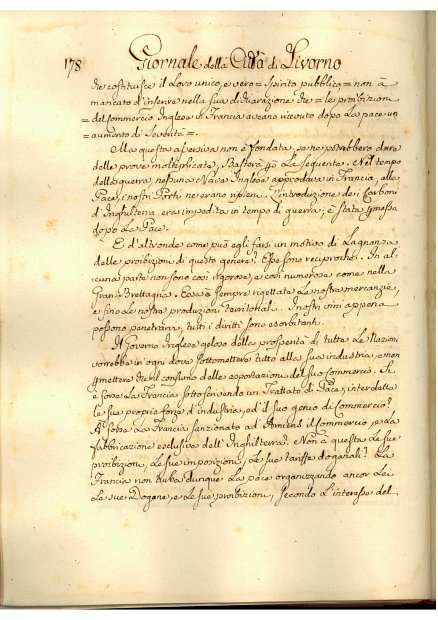 178 Giornale della Città di Livorno
che costituisce il Loro unico, e vero = Spirito pubblico = non à
mancato d'inserire nella sua dichiarazione che = le proibizioni
= del commercio Inglese di Francia aveano ricevuto dopo la pace un
= aumento di Severità =.
Ma questa asersiva non è fondata, se ne potrebbero dare
delle prove moltiplicate; Basterà la Seguente. Nel tempo
della guerra, nessuna Nave Inglese approdava in Francia, alla
Pace i nostri Porti ne erano ripieni. L'introduzione dei Carboni
d'Inghilterra era impedita in tempo di guerra; è stata permessa
dopo la Pace.
E d'altronde come può egli farsi un motivo di Lagnanza
delle proibizioni di questo genere? Esse sono reciproche. In al-
cuna parte non sono così rigorose, e così numerose come nella
Gran-Brettagna. Essa à sempre rigettate Le nostre mercanzie,
e fino Le nostre produzioni territoriali. I nostri vini appena
possono penetrarvi, tutti i diritti sono esorbitanti.
Il Governo Inglese geloso della prosperità di tutte Le Nazioni
vorrebbe in ogni dove sottomettere tutto alla sua industria, e non
permettere che il consumo delle esportazioni del suo Commercio. Si
è forse La Francia sottoscrivendo un Trattato di Pace, interdetta
la sua propria forza d'industria, ed il suo genio di Commercio?
À forse La Francia sanzionato ad Amiens il Commercio, e La
fabbricazione esclusiva dell'Inghilterra? Non à questa Le sue
proibizioni, Le sue imposizioni, Le sue tariffe doganali? La
Francia non ruba dunque La pace organizzando ancor Lei
Le sue Dogane, e Le sue proibizioni, secondo L'interesse del